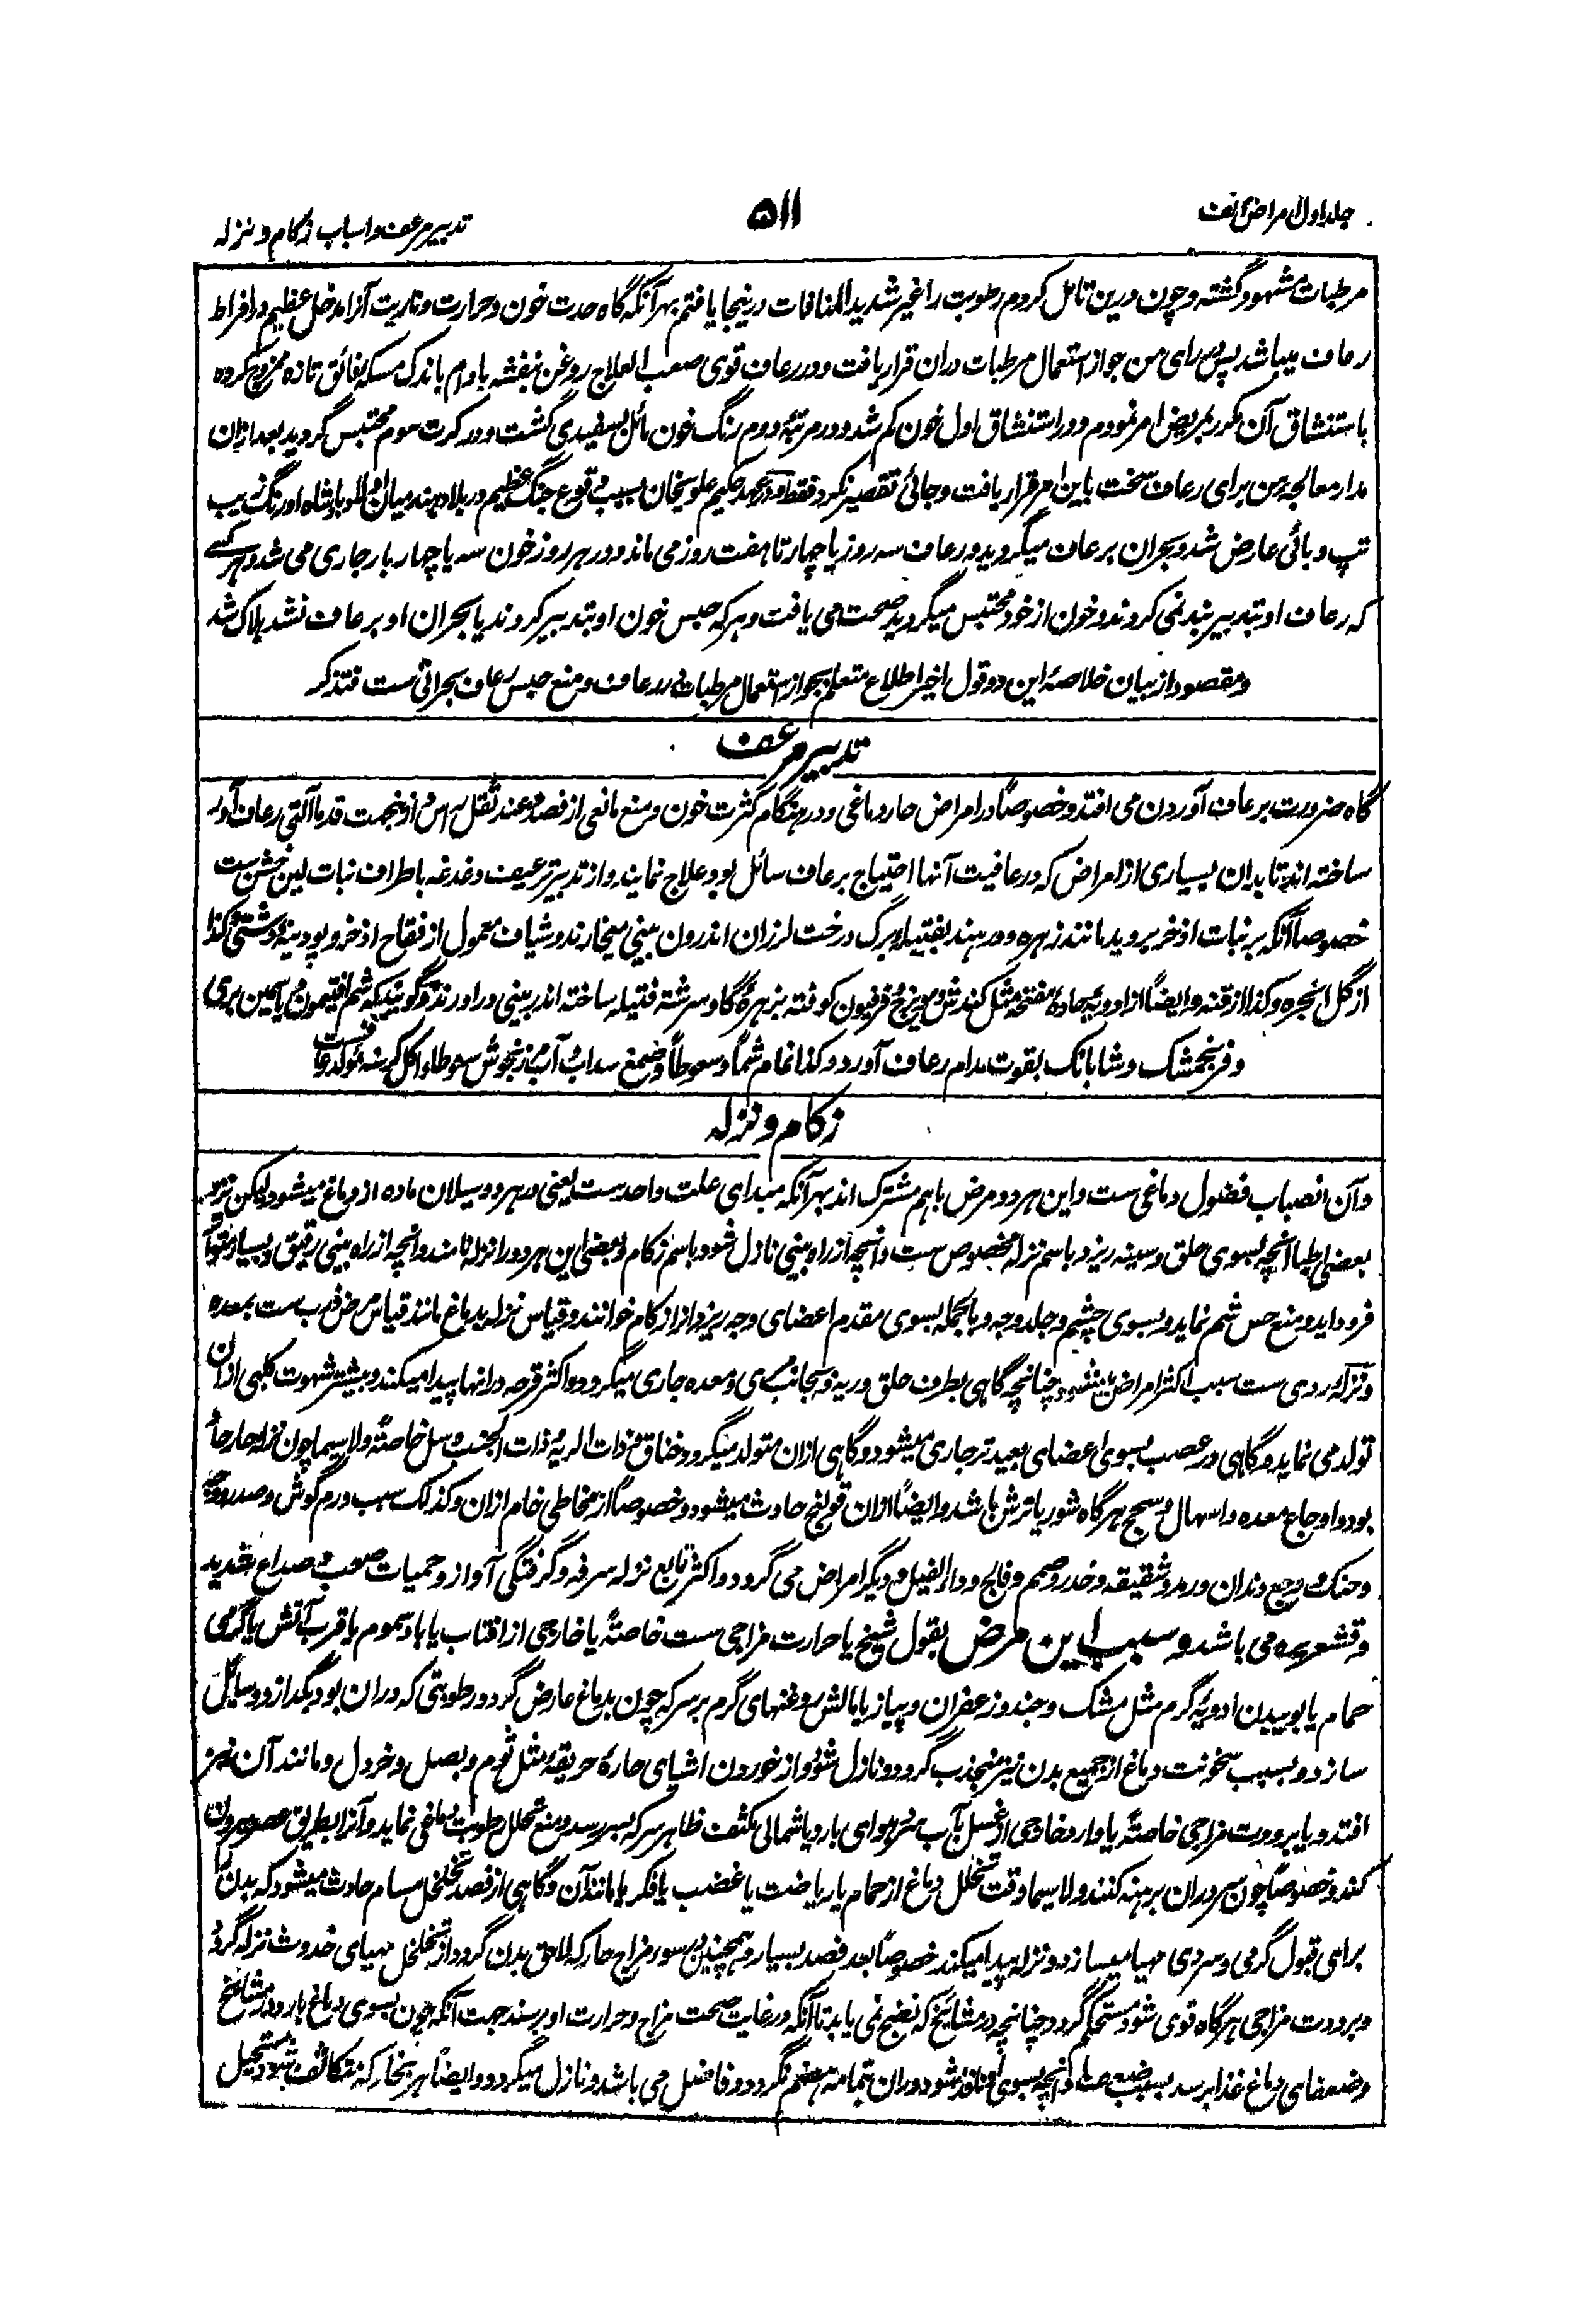 جلد اول امراض انف
۵۱۱
تدبیر مرعف و اسباب زکام و نزله
مرطبات مشهود گشته و چون درین تامل کردم رطوبت را غیر شدید المنافات درینجا یافتم بهر آنکه گاه حدت خون و حرارت و ناریت آنرا مدخل عظیم در افراط
رعاف میباشد پس برای من جواز استعمال مرطبات دران قرار یافت و در رعاف قوی صعب العلاج روغن بنفشه بادام باندک مسکه فائق تازه ممزوج کرده
باستنشاق آن مکرر بمریض امر نمودم و در استنشاق اول خون کم شد و در مرتبه دوم رنگ خون مائل بسفیدی گشت و در کرت سوم محتبس گردید بعد ازان
مدار معالجه من برای رعاف سخت باین امر قرار یافت و جائی تقصیر نکرد فقط و در عهد حکیم علویخان بسبب وقوع جنگ عظیم در بلاد هند میان اولاد پادشاه اورنگ زیب
تپ وبائی عارض شد و بحران برعاف میگردید و رعاف سه روز یا چهار تا هفت روز می ماند و در هر روز خون سه یا چهار بار جاری می شد و هر کسے
که رعاف او بتدبیر بند نمی کردند و خون از خود محتبس میگردید صحت می یافت و هرکه حبس خون او بتدبیر کردند یا بحران او برعاف نشد هلاک شد
و مقصود از بیان خلاصهٔ این دو قول اخیر اطلاع متعلم بجواز استعمال مرطبات در رعاف و منع حبس رعاف بحرانی ست فتذکر
تدبیر مرعف
گاه ضرورت برعاف آوردن می افتد و خصوصاً در امراض حار دماغی و در هنگام کثرت خون و منع مانعی از فصد و عند ثقل راس و ازینجهت قدما آلتی رعاف آور
ساخته اند تا بدان بسیاری از امراض که در عافیت آنها احتیاج برعاف سائل بود علاج نمایند و از تدبیر ترعیف دغدغه باطراف نبات لین خشن ست
خصوصاً آنکه بر نبات اذخر بروید مانند زهره و در هند بفتیله برگ درخت لرزان اندرون بینی میخارند و شیاف معمول از فقاح اذخر و پودینه دشتی و کذا
از گل انجره و کذا از قنه و ایضاً از ادویه حاده مفتحه مثل کندش و میویزج و فرفیون کوفته بزهرهٔ گاو سرشته فتیله ساخته اندر بینی در آورند و گویند که شم افتیمون و یاسمین بری
و فرنجمشک و شابانک بقوت مدام رعاف آورد و کذا نمام شماً و سعوطاً و صمغ سداب و آب مرزنجوش سعوطا و اکل کرسنه مولد رعاف ست
زکام و نزله
و آن انصباب فضول دماغی ست و این هر دو مرض باهم مشترک اند بهر آنکه مبدای علت واحد ست یعنی در هر دو سیلان ماده از دماغ میشود لیکن نزد
بعضی اطبا آنچه بسوی حلق و سینه ریزد باسم نزله مخصوص ست و آنچه از راه بینی نازل شود باسم زکام و بعضی این هر دو را نزله نامند و آنچه از راه بینی رقیق و بسیار و متواتر
فرود آید و منع حس شم نماید و بسوی چشم و جلد وجه و بالجمله بسوی مقدم اعضای وجه ریزد آنرا زکام خوانند و قیاس نزله بدماغ مانند قیاس مرض ذرب ست بمعده
و نزله ردی ست سبب اکثر امراض میشود چنانچه گاهی بطرف حلق و ریه و بجانب مری و معده جاری میگردد و اکثر قرحه در آنها پیدا میکند و بیشتر شهوت کلبی ازان
تولد می نماید و گاهی در عصب بسوی اعضای بعید تر جاری میشود و گاهی ازان متولد میگردد خناق و ذات الریه و ذات الجنب و سل خاصتهً و لاسیما چون نزله حار حاد
بود و اوجاع معده و اسهال و سحج هرگاه شور یا ترش باشد و ایضاً ازان قولنج حادث میشود و خصوصاً از مخاطی خام ازان و کذلک سبب ورم گوش و صدر و وجه
و حنک و وجع دندان و رمد و شقیقه و خدر و صمم و فالج و داء الفیل و دیگر امراض می گردد و اکثر تابع نزله سرفه و گرفتگی آواز و حمیات صعب و صداع شدید
و قشعریره می باشد و سبب این مرض بقول شیخ یا حرارت مزاجی ست خاصتهً یا خارجی از آفتاب یا باد سموم یا قرب آتش یا گرمی
حمام یا بوییدن ادویه گرم مثل مشک و جند و زعفران و پیاز یا مالش روغنهای گرم بر سر که چون بدماغ عارض گردد رطوبتی که دران بود بگدازد و سائل
سازد و بسبب سخونت دماغ از جمیع بدن نیز منجذب گردد و نازل شود و از خوردن اشیای حاره حریفه مثل ثوم و بصل و خردل و مانند آن نیز
افتد و یا برودت مزاجی خاصتهً یا وارد خارجی از غسل بآب سرد و هوای بارد یا شمالی بکشف ظاهر سر که بسر رسد و منع تحلل رطوبت دماغی نماید و آنرا بطریق عصر بیرون
کند و خصوصاً چون سر دران برهنه کنند و لاسیما وقت تخلخل دماغ از حمام یا ریاضت یا غضب یا فکر یا مانند آن و گاهی از فصد تخلخل مسام حادث میشود که بدن را
برای قبول گرمی و سردی مهیا میسازد و نزله پیدا میکند خصوصاً بعد فصد بسیار و همچنین هر سوء مزاج حار که لاحق بدن گردد از تخلخل مهیای حدوث نزله گردد
و برودت مزاجی هرگاه قوی شود مستحکم گردد چنانچه در مشایخ که نضج نمی یابد تا آنکه در غایت صحت مزاج و حرارت او برسند جهت آنکه چون بسوی دماغ بارد و مشایخ
و ضعفای دماغ غذا برسد بسبب ضعف هضم آنچه بسوی او نافذ شود دران بتمامه هضم نگردد و فاضل می باشد و نازل میگردد و ایضاً هر بخار که متکاثف شود مستحیل